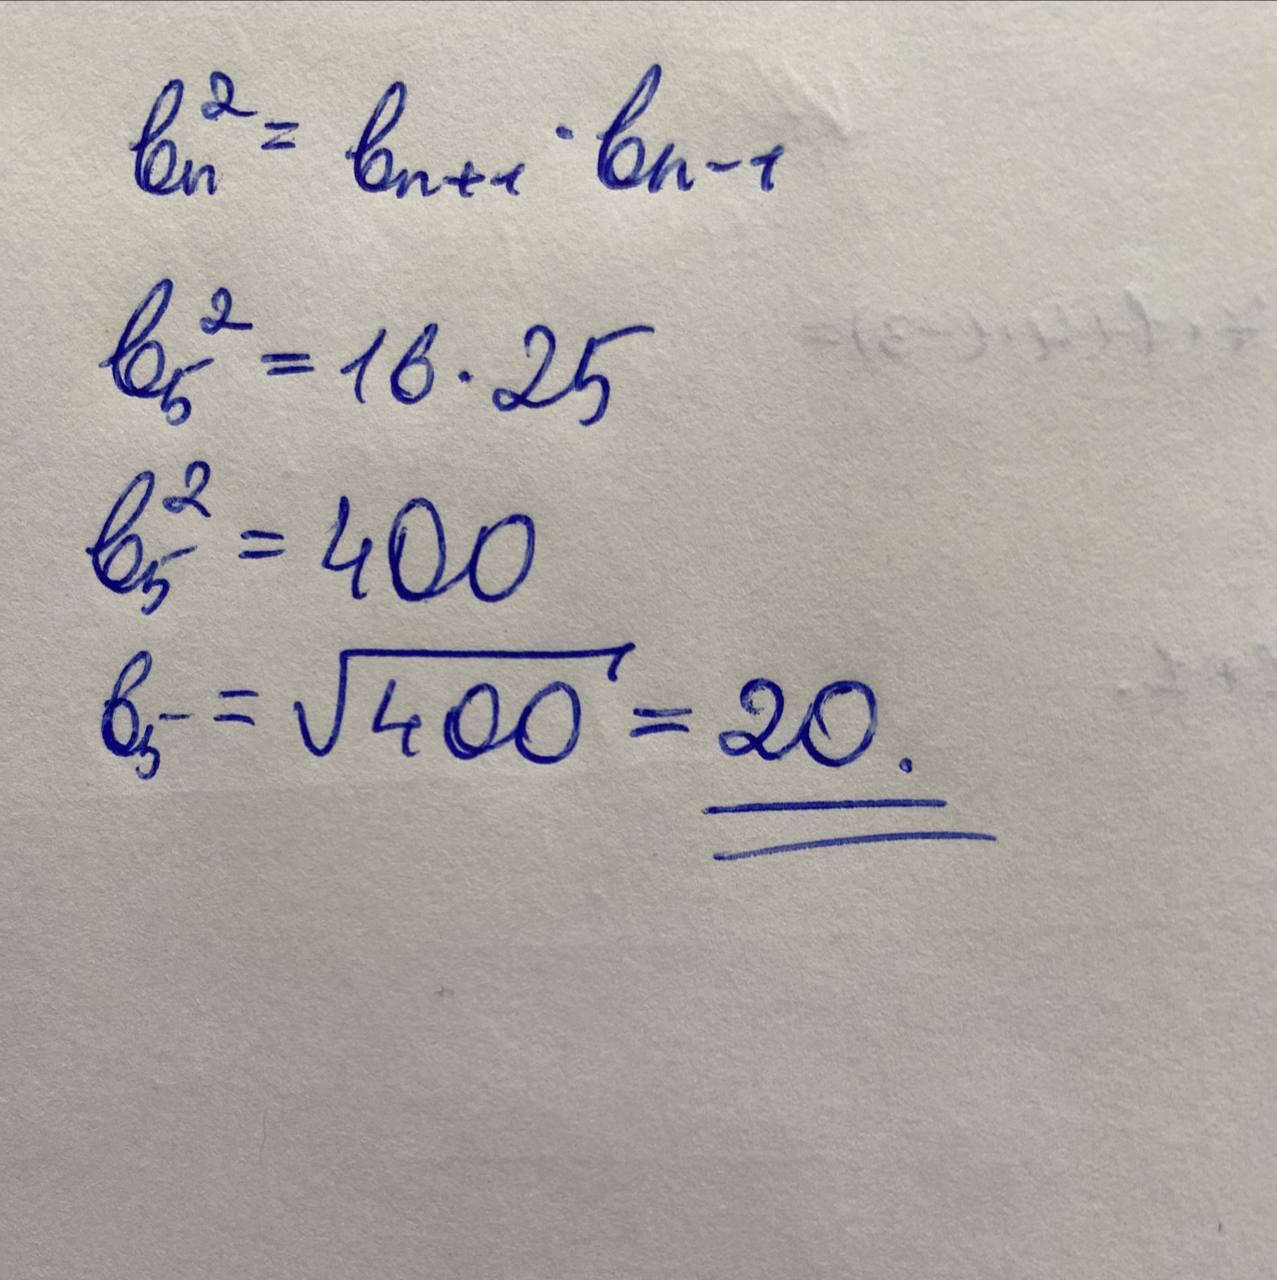 bₙ² = bₙ₊₁ · bₙ₋₁
b₅² = 16 · 25
b₅² = 400
b₅ = √400 = 20.